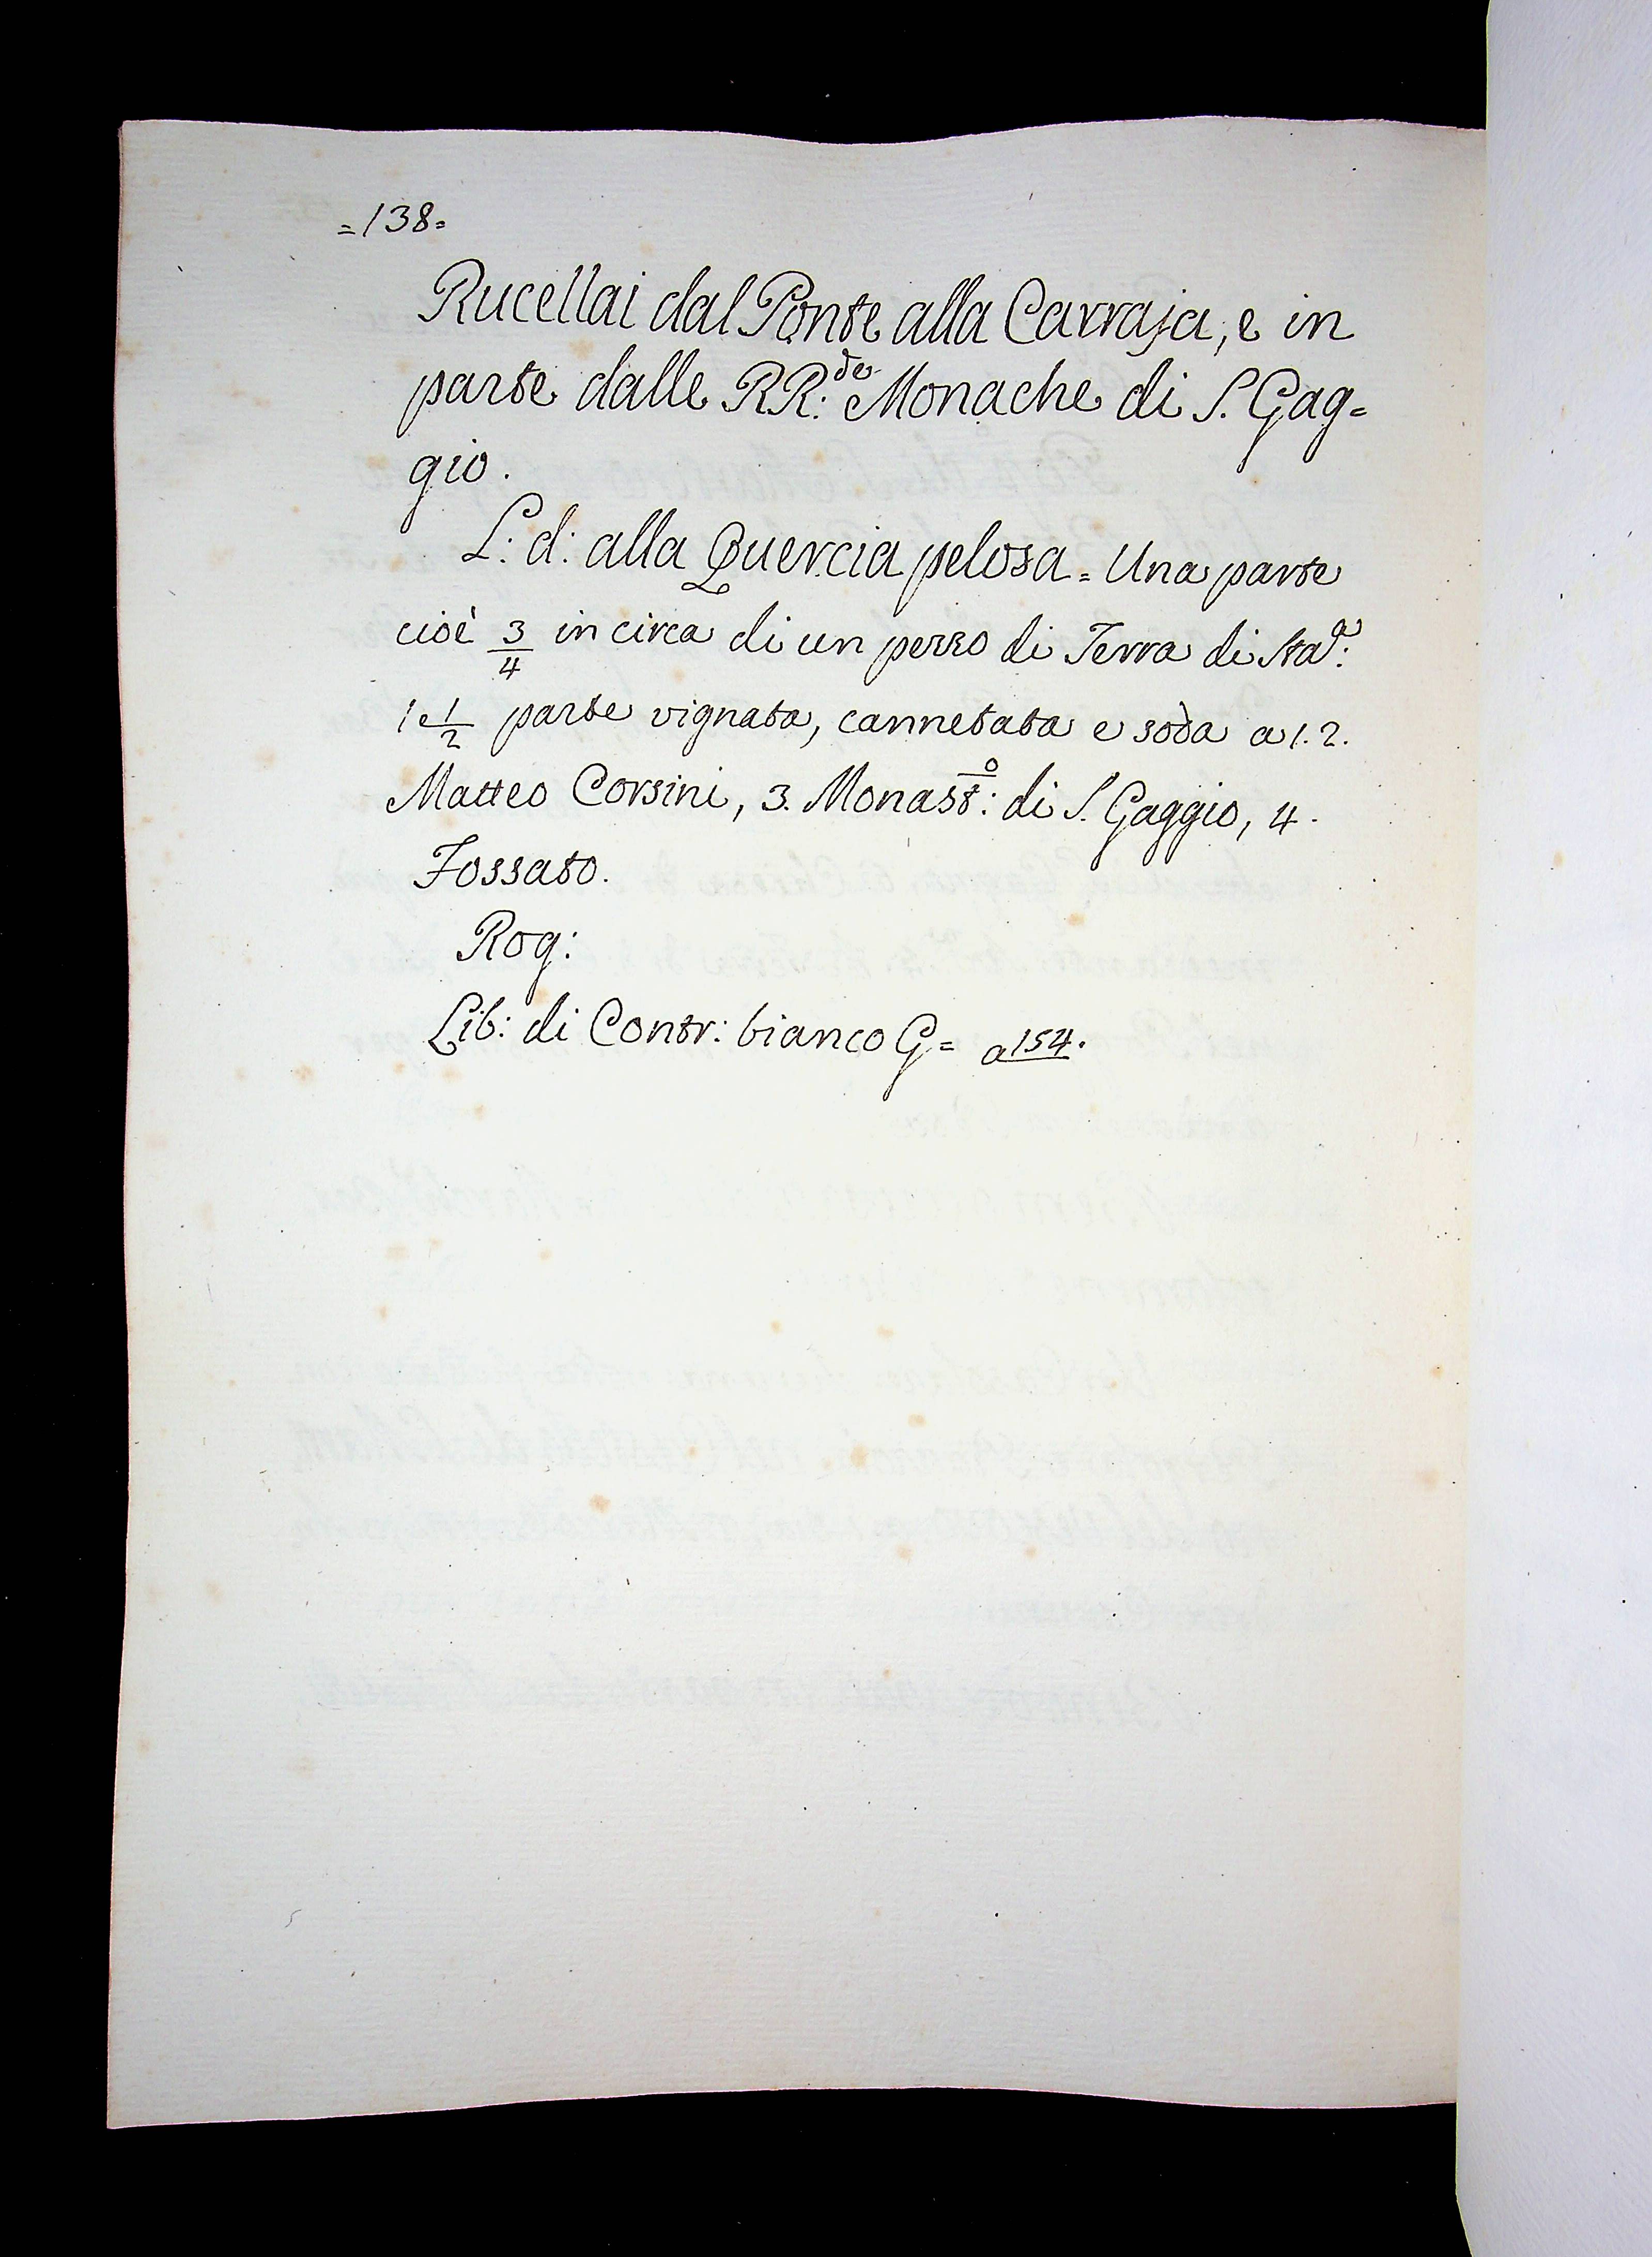 =138=
Rucellai dal Ponte alla Carraja, e in
parte dalle RR:de Monache di S. Gag=
gio.
L: d: alla Quercia pelosa = Una parte
cioè 3/4 in circa di un pezzo di Terra di Sta:a
1 e 1/2 parte vignata, cannetata e soda a 1. 2.
Matteo Corsini, 3. Monast:o di S. Gaggio, 4.
Fossato.
Rog:
Lib: di Contr: bianco G= a 154.